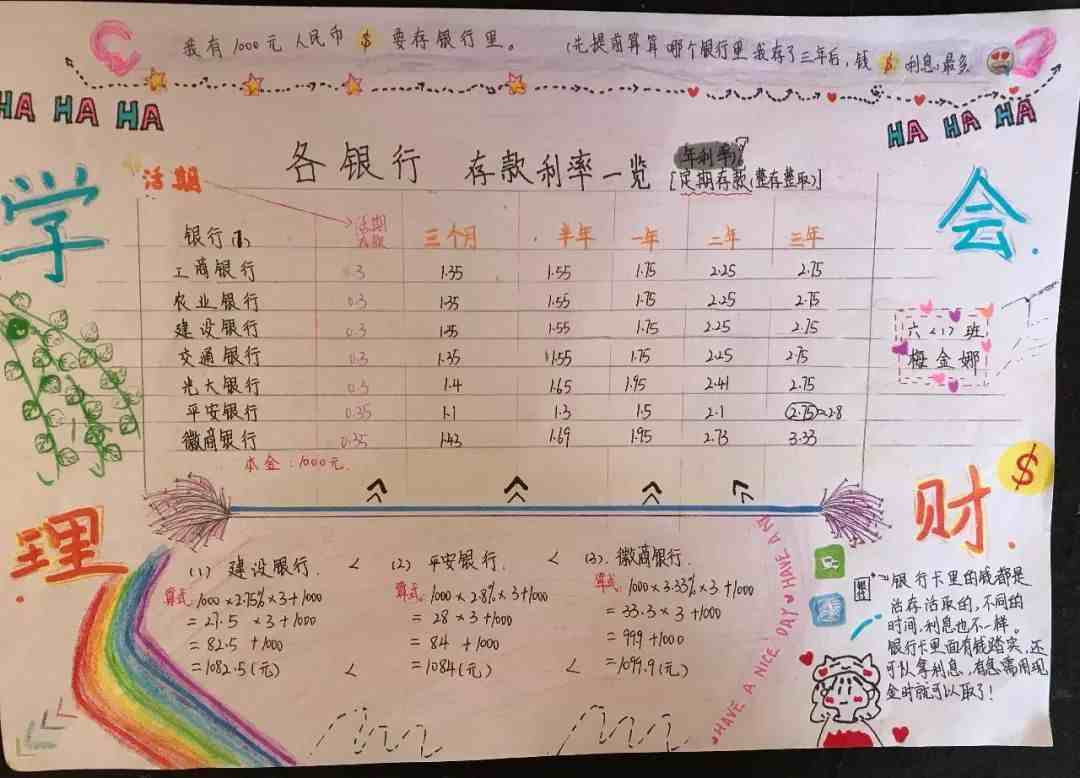 我有1000元人民币$要存银行里。 (先提前算算哪个银行里我存了三年后,钱$利息,最多
HA HA HA
HA HA HA
各银行 存款利率一览
年利率
[定期存款(整存整取)]
活期
学
会
银行 活期 三个月 半年 一年 二年 三年
工商银行 0.3 1.35 1.55 1.75 2.25 2.75
农业银行 0.3 1.35 1.55 1.75 2.25 2.75
建设银行 0.3 1.35 1.55 1.75 2.25 2.75
交通银行 0.3 1.35 1.55 1.75 2.25 2.75
光大银行 0.3 1.4 1.65 1.95 2.41 2.75
平安银行 0.35 1.1 1.3 1.5 2.1 2.75≈2.8
徽商银行 0.35 1.43 1.69 1.95 2.73 3.33
本金:1000元.
六(1)班
梅金娜
理
财
$
(1) 建设银行. < (2) 平安银行. < (3). 徽商银行.
算式: 1000×2.75%×3+1000
=27.5×3+1000
=82.5+1000
=1082.5(元) <
算式: 1000×2.8%×3+1000
=28×3+1000
=84+1000
=1084(元) <
算式: 1000×3.33%×3+1000
=33.3×3+1000
=999+1000
=1099.9(元)
HAVE A NICE DAY
HAVE A NI
银行卡里的钱都是
活存活取的,不同的
时间,利息也不一样。
银行卡里面有钱踏实,还
可以拿利息,有急需用现
金时就可以取了!